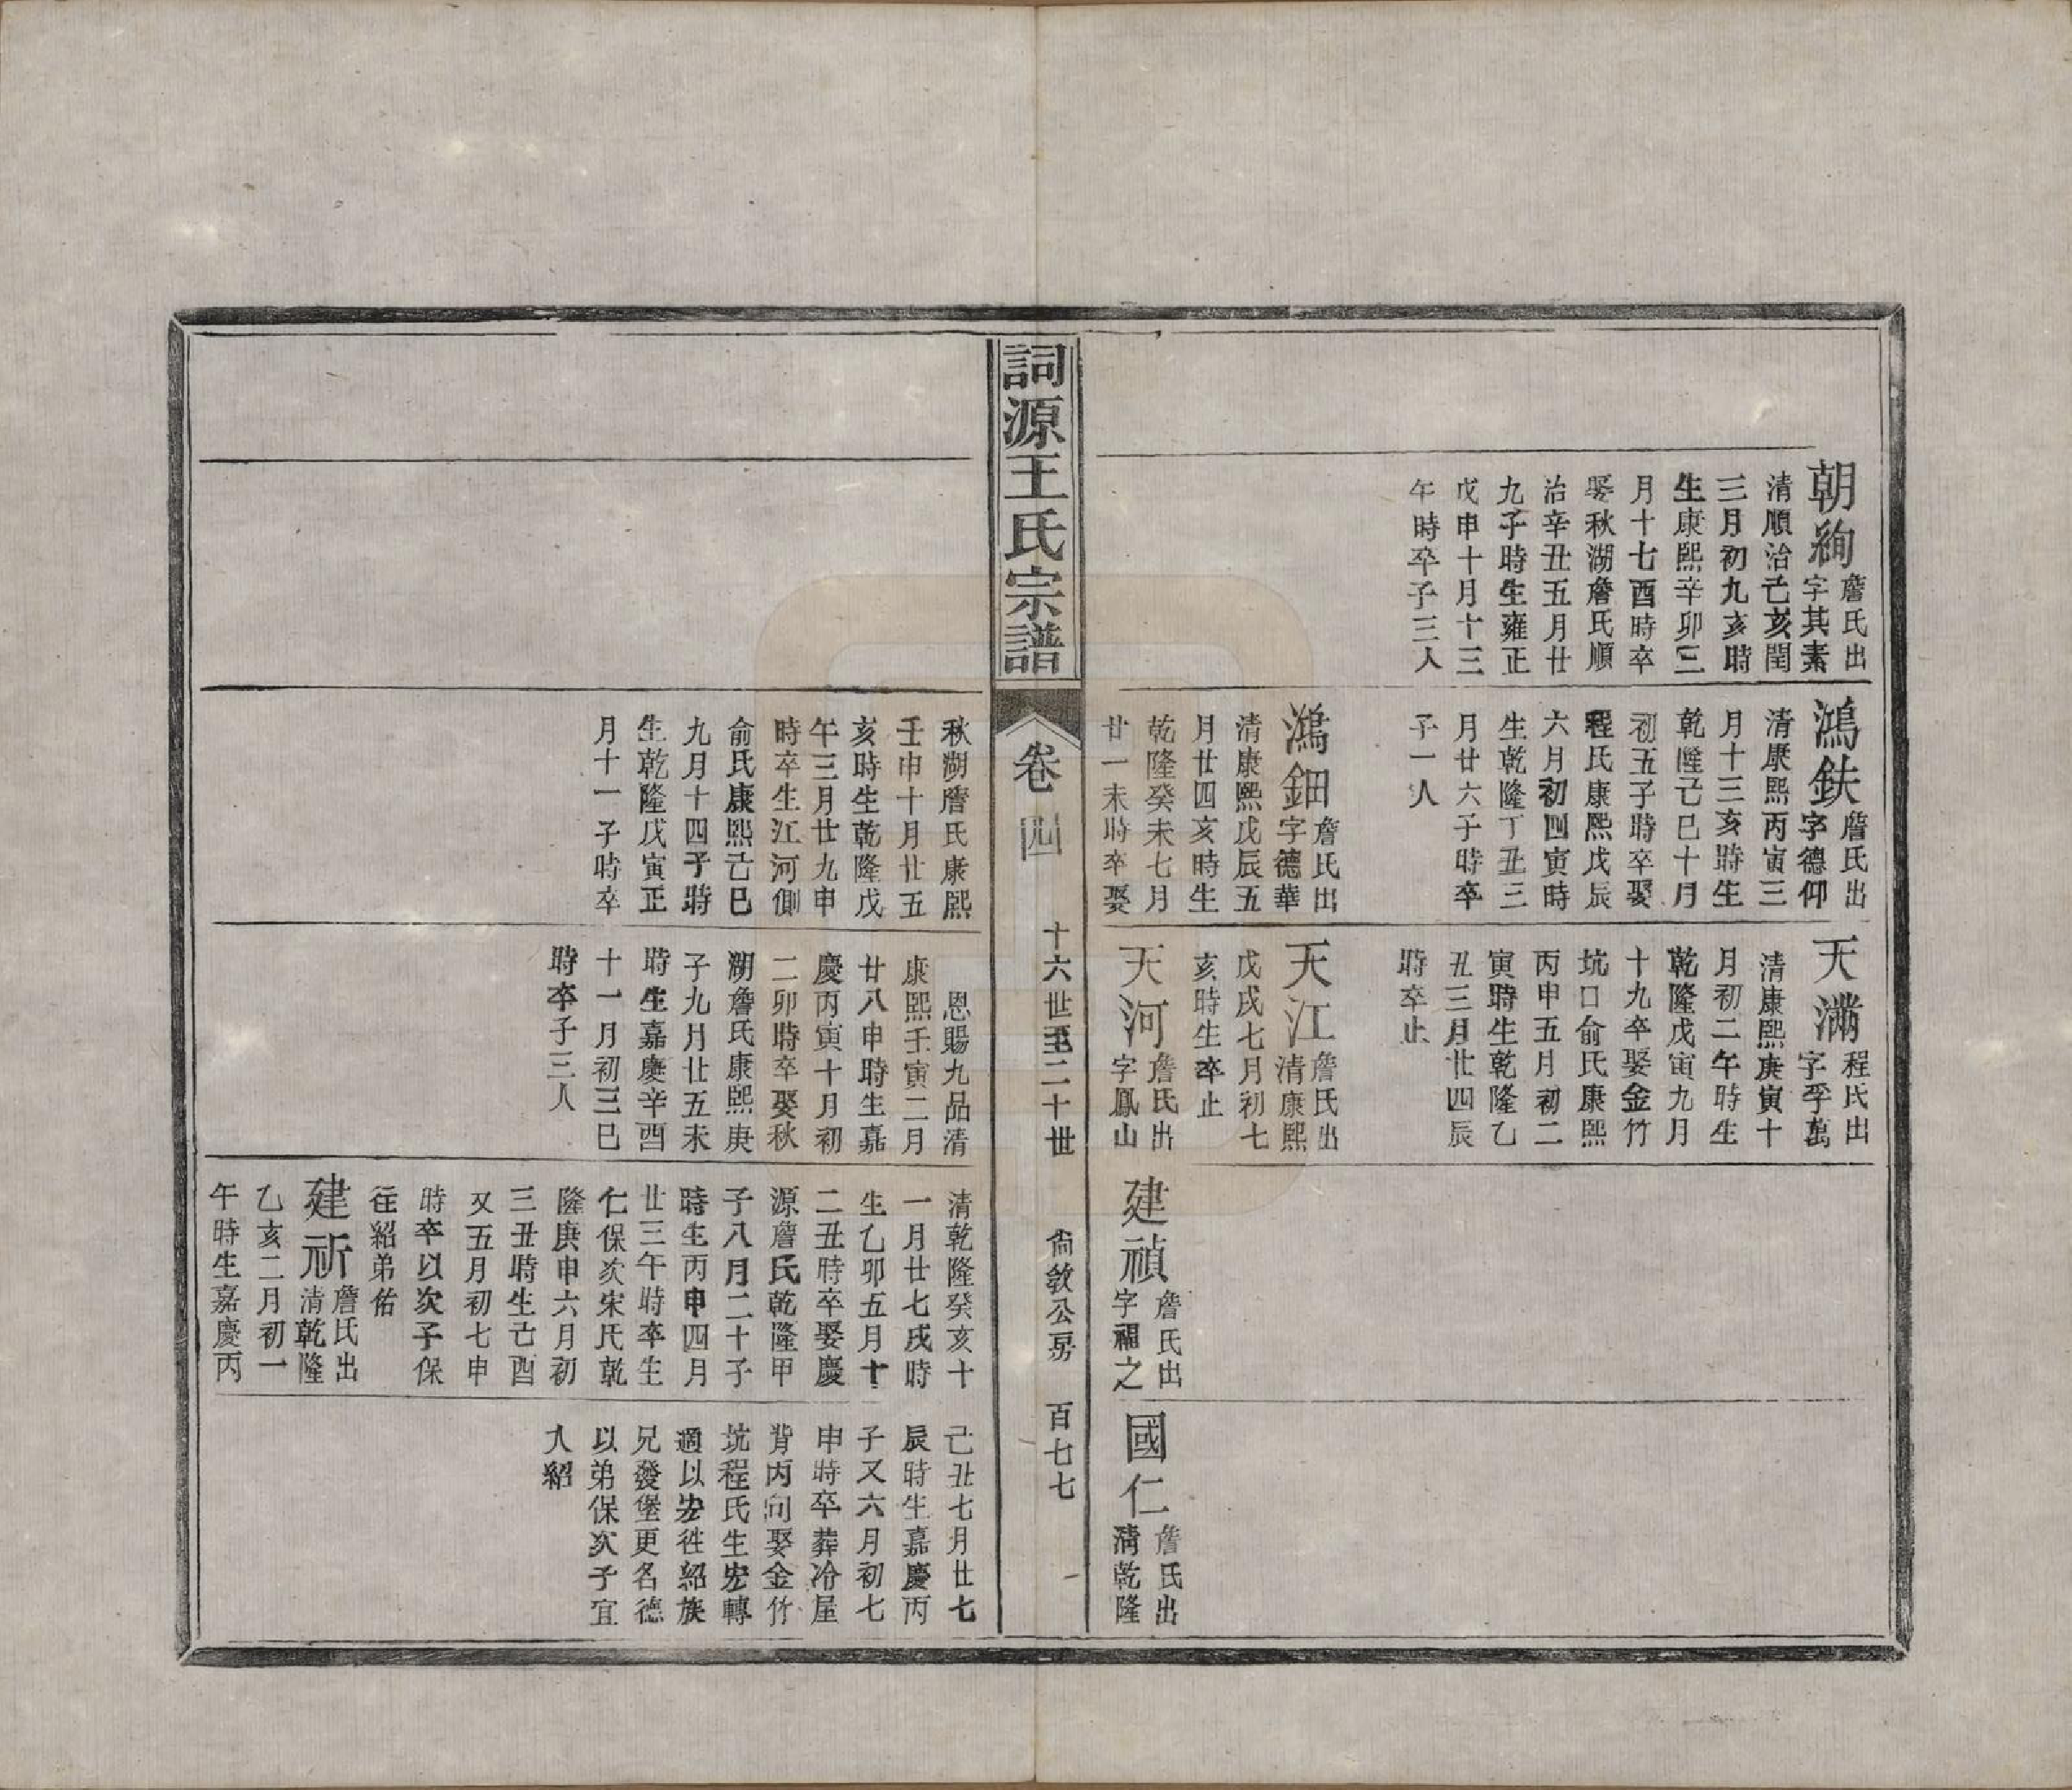 朝絢
詹氏出
字其素
清順治己亥閏
三月初九亥時
生康熙辛卯三
月十七酉時卒
娶秋湖詹氏順
治辛丑五月廿
九子時生雍正
戊申十月十三
午時卒子三人
鴻鈇
詹氏出
字德仰
清康熙丙寅三
月十三亥時生
乾隆己巳十月
初五子時卒娶
程氏康熙戊辰
六月初四寅時
生乾隆丁丑三
月廿六子時卒
子一人
鴻鈿
詹氏出
字德華
清康熙戊辰五
月廿四亥時生
乾隆癸未七月
廿一未時卒娶
天滿
程氏出
字季萬
清康熙庚寅十
月初二午時生
乾隆戊寅九月
十九卒娶金竹
坑口俞氏康熙
丙申五月初二
寅時生乾隆乙
丑三月廿四辰
時卒止
天江
詹氏出
清康熙
戊戌七月初七
亥時生卒止
天河
詹氏出
字鳳山
建禎
詹氏出
字福之
國仁
詹氏出
清乾隆
詞源王氏宗譜
卷四
十六世至二十世
尙敘公房
百七七
秋湖詹氏康熙
壬申十月廿五
亥時生乾隆戊
午三月廿九申
時卒生江河側
俞氏康熙己巳
九月十四子時
生乾隆戊寅正
月十一子時卒
恩賜九品清
康熙壬寅二月
廿八申時生嘉
慶丙寅十月初
二卯時卒娶秋
湖詹氏康熙庚
子九月廿五未
時生嘉慶辛酉
十一月初三巳
時卒子三人
清乾隆癸亥十
一月廿七戌時
生乙卯五月十
二丑時卒娶慶
源詹氏乾隆甲
子八月二十子
時生丙申四月
廿三午時卒生
仁保次宋氏乾
隆庚申六月初
三丑時生己酉
又五月初七申
時卒以次子保
往紹弟佑
建祈
詹氏出
清乾隆
乙亥二月初一
午時生嘉慶丙
己丑七月廿七
辰時生嘉慶丙
子又六月初七
申時卒葬冷屋
背丙向娶金竹
坑程氏生宏轉
週以宏往紹族
兄發堡更名德
以弟保次子宜
入紹